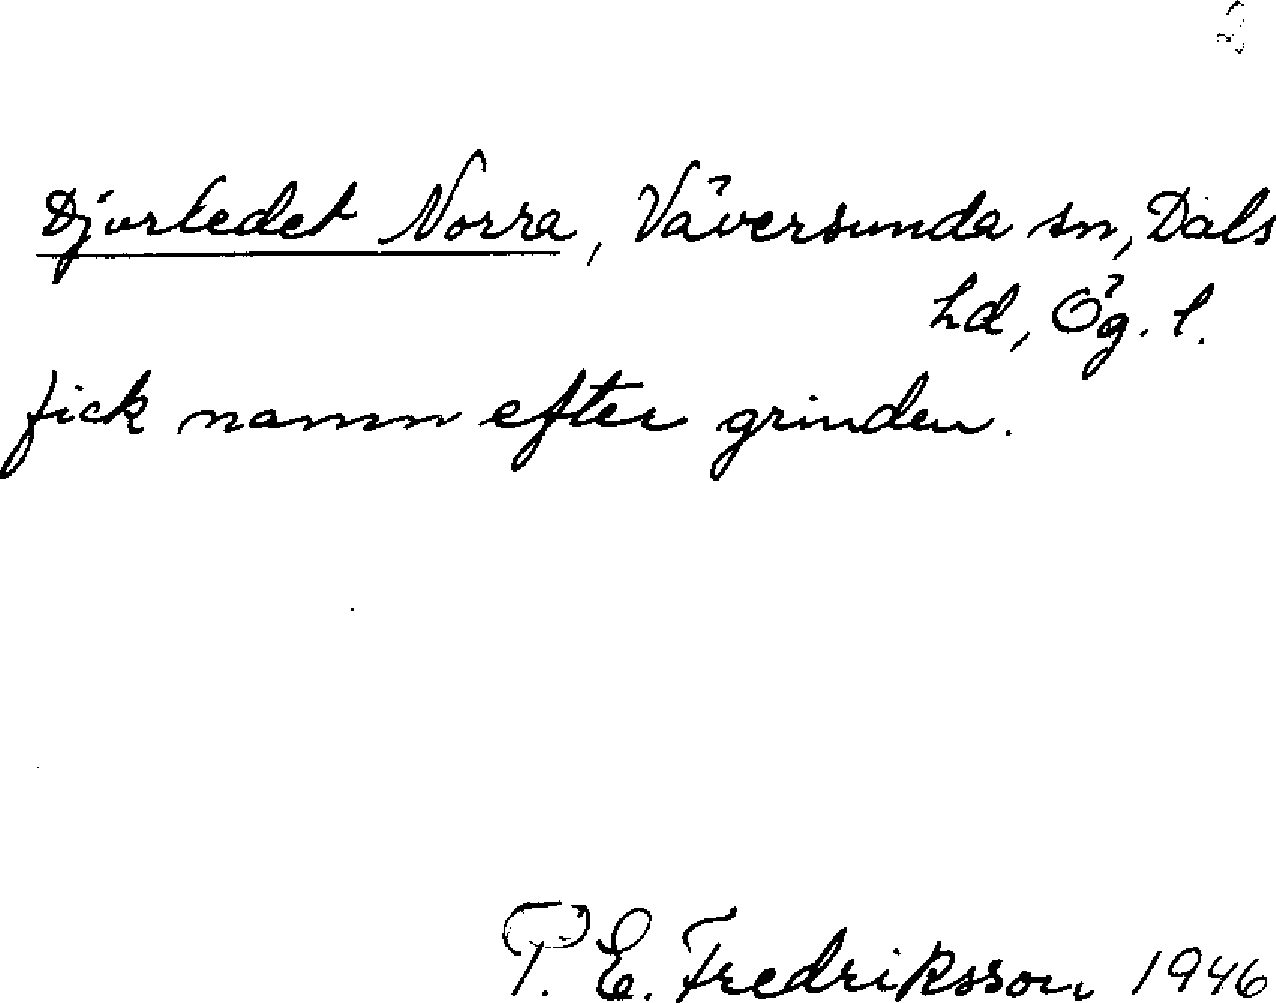 Djurledet Norra, Väversunda sn, Dals
hd, Ög. l.
fick namn efter grinden.
P. E. Fredriksson 1946